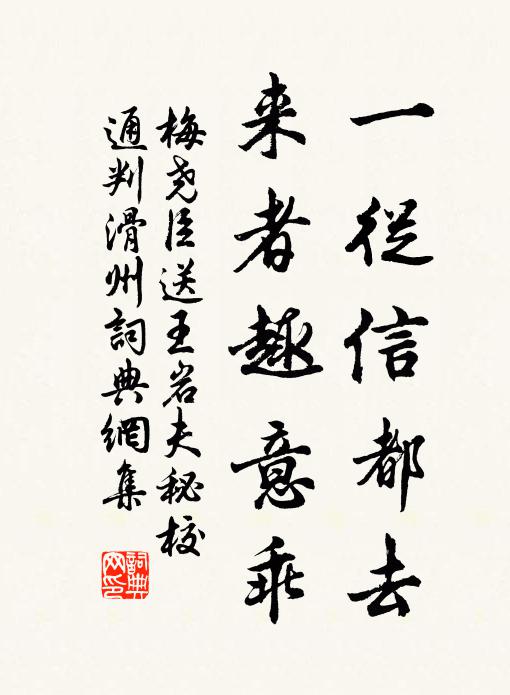 一從信都去
来者趣意乖
梅尧臣送王岩夫秘校
通判滑州詞典網集
詞典
网印